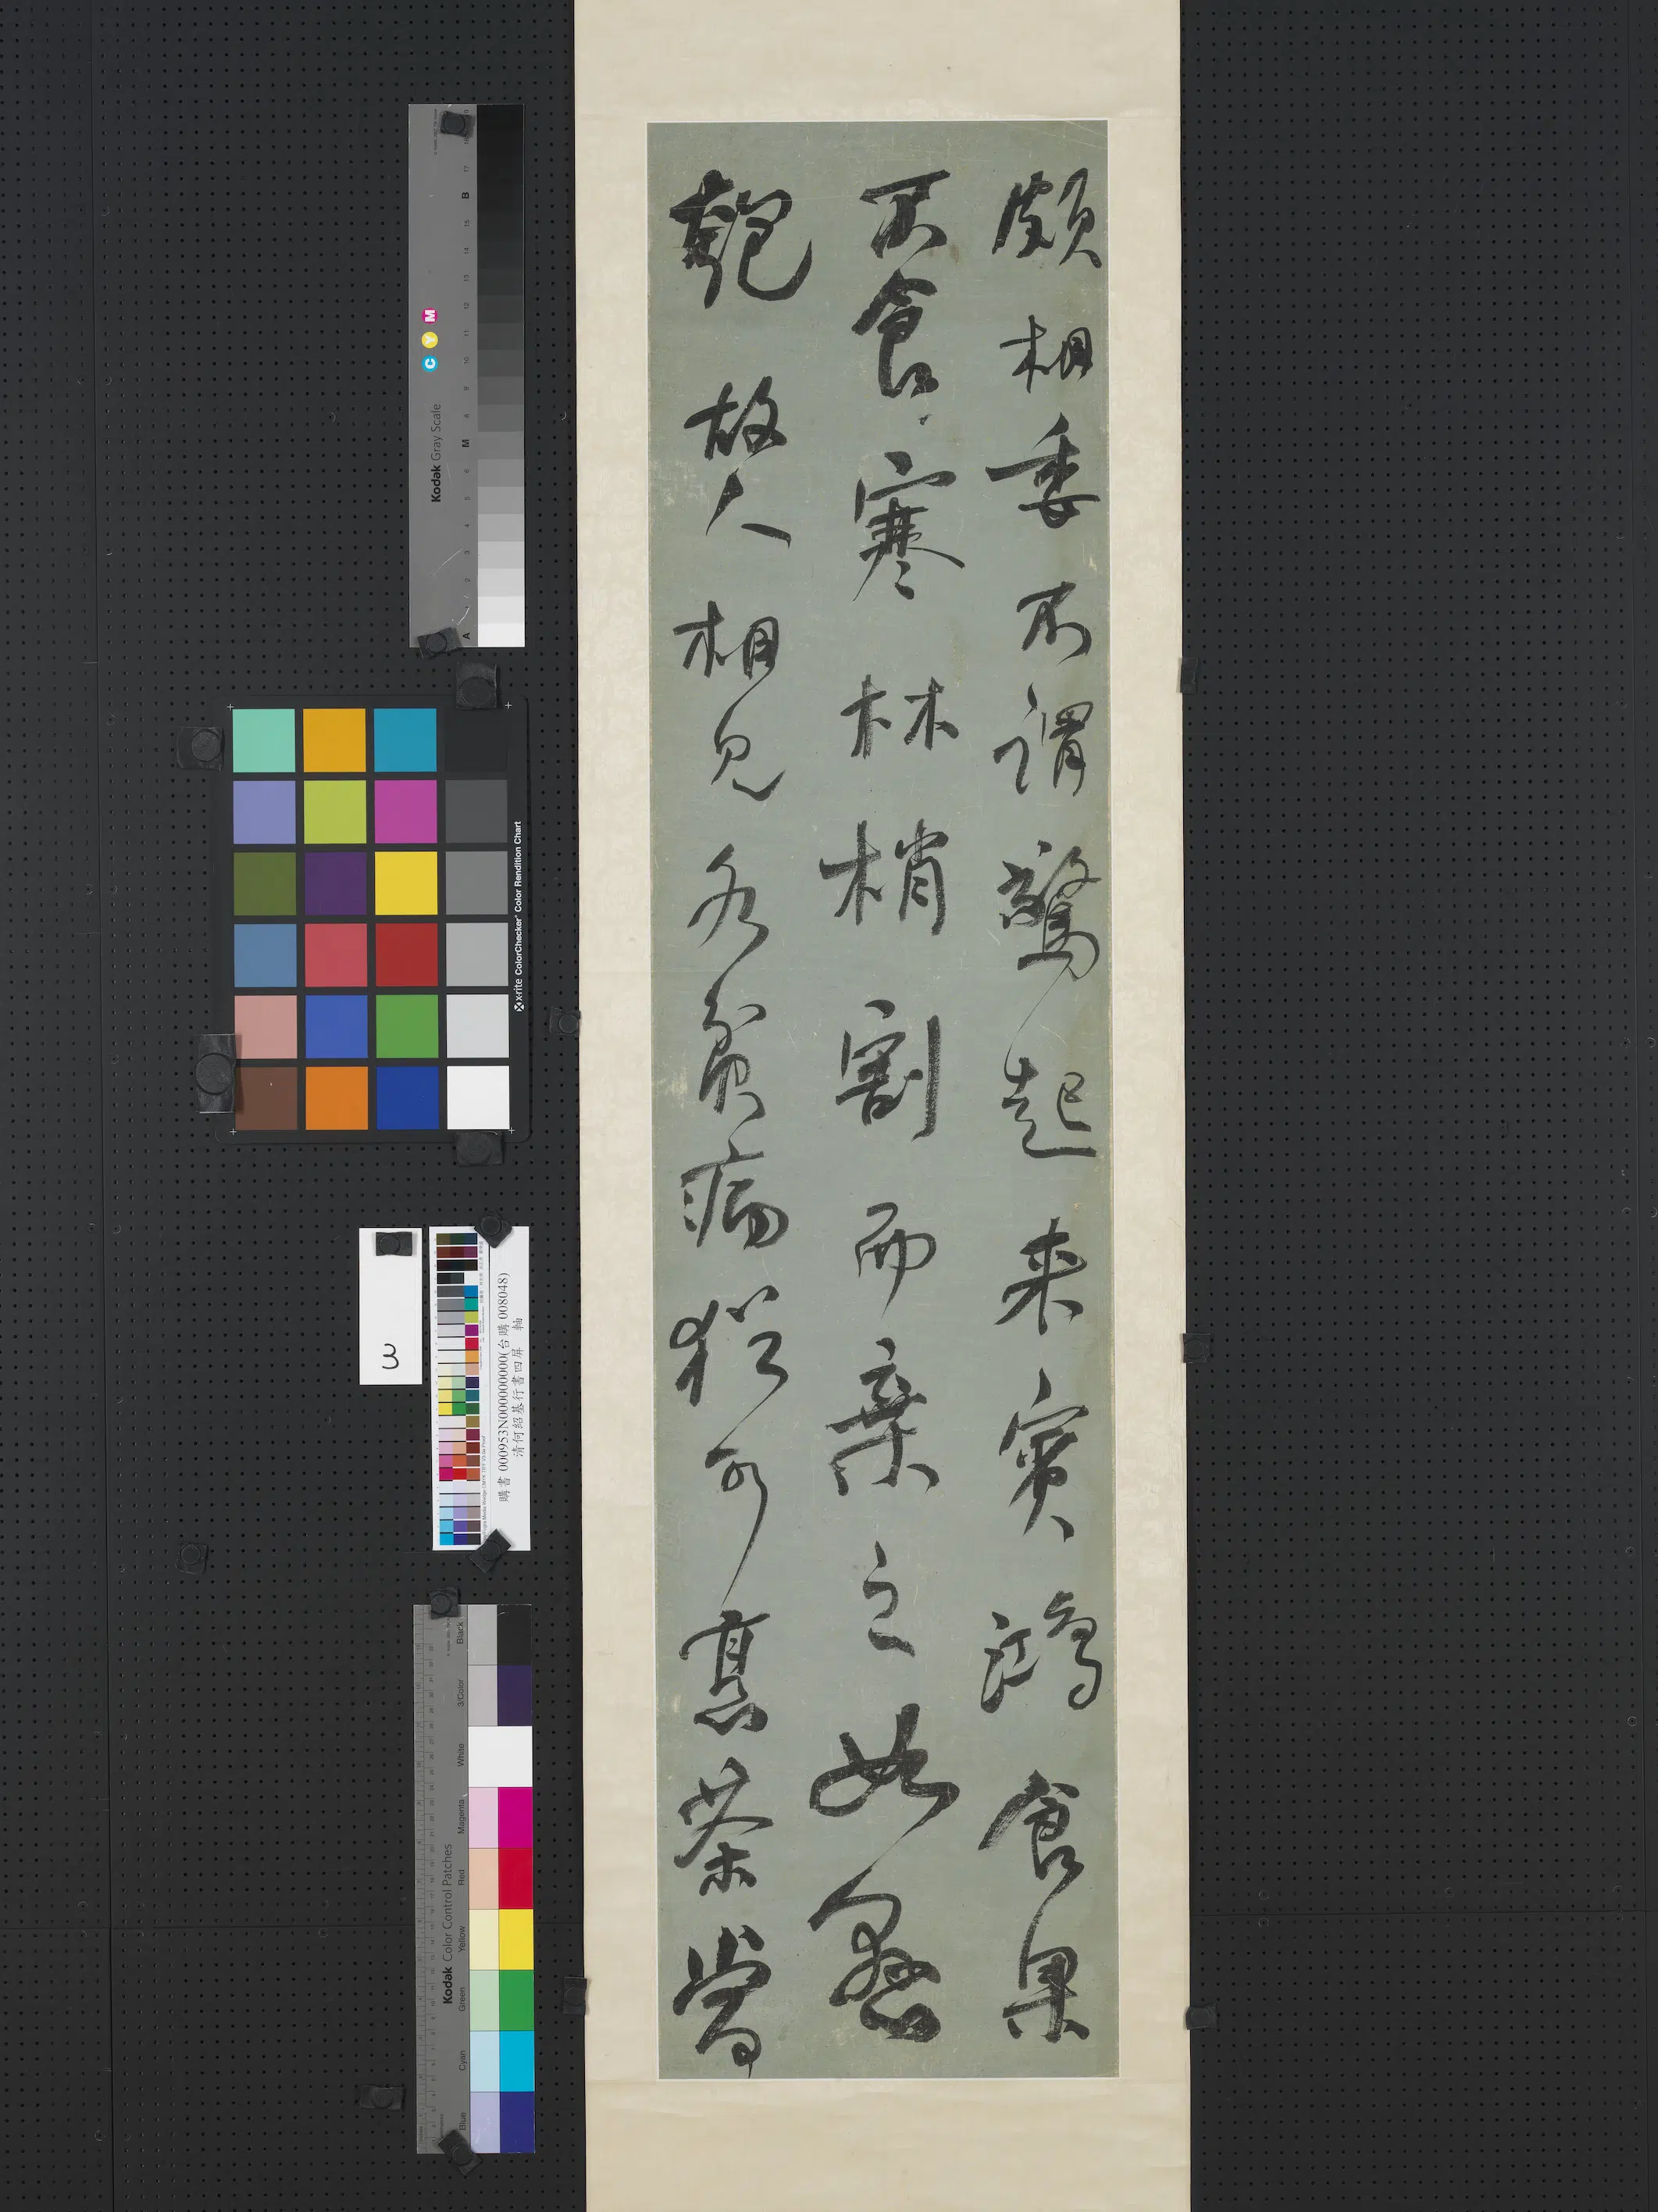 頗相委不謂驚起來賓鴻食果
不食寒林梢割而棄之如惡
匏故人相見各貧病猶可烹茶當
Kodak Gray Scale
C Y M
A 1 2 3 4 5 6 M 8 9 10 11 12 13 14 15 B 17 18 19
x-rite ColorChecker Color Rendition Chart
3
購書 000953N000000000(台購 008048)
清何紹基行書四屏 軸
Kodak Color Control Patches
Blue Cyan Green Yellow Red Magenta White 3/Color Black